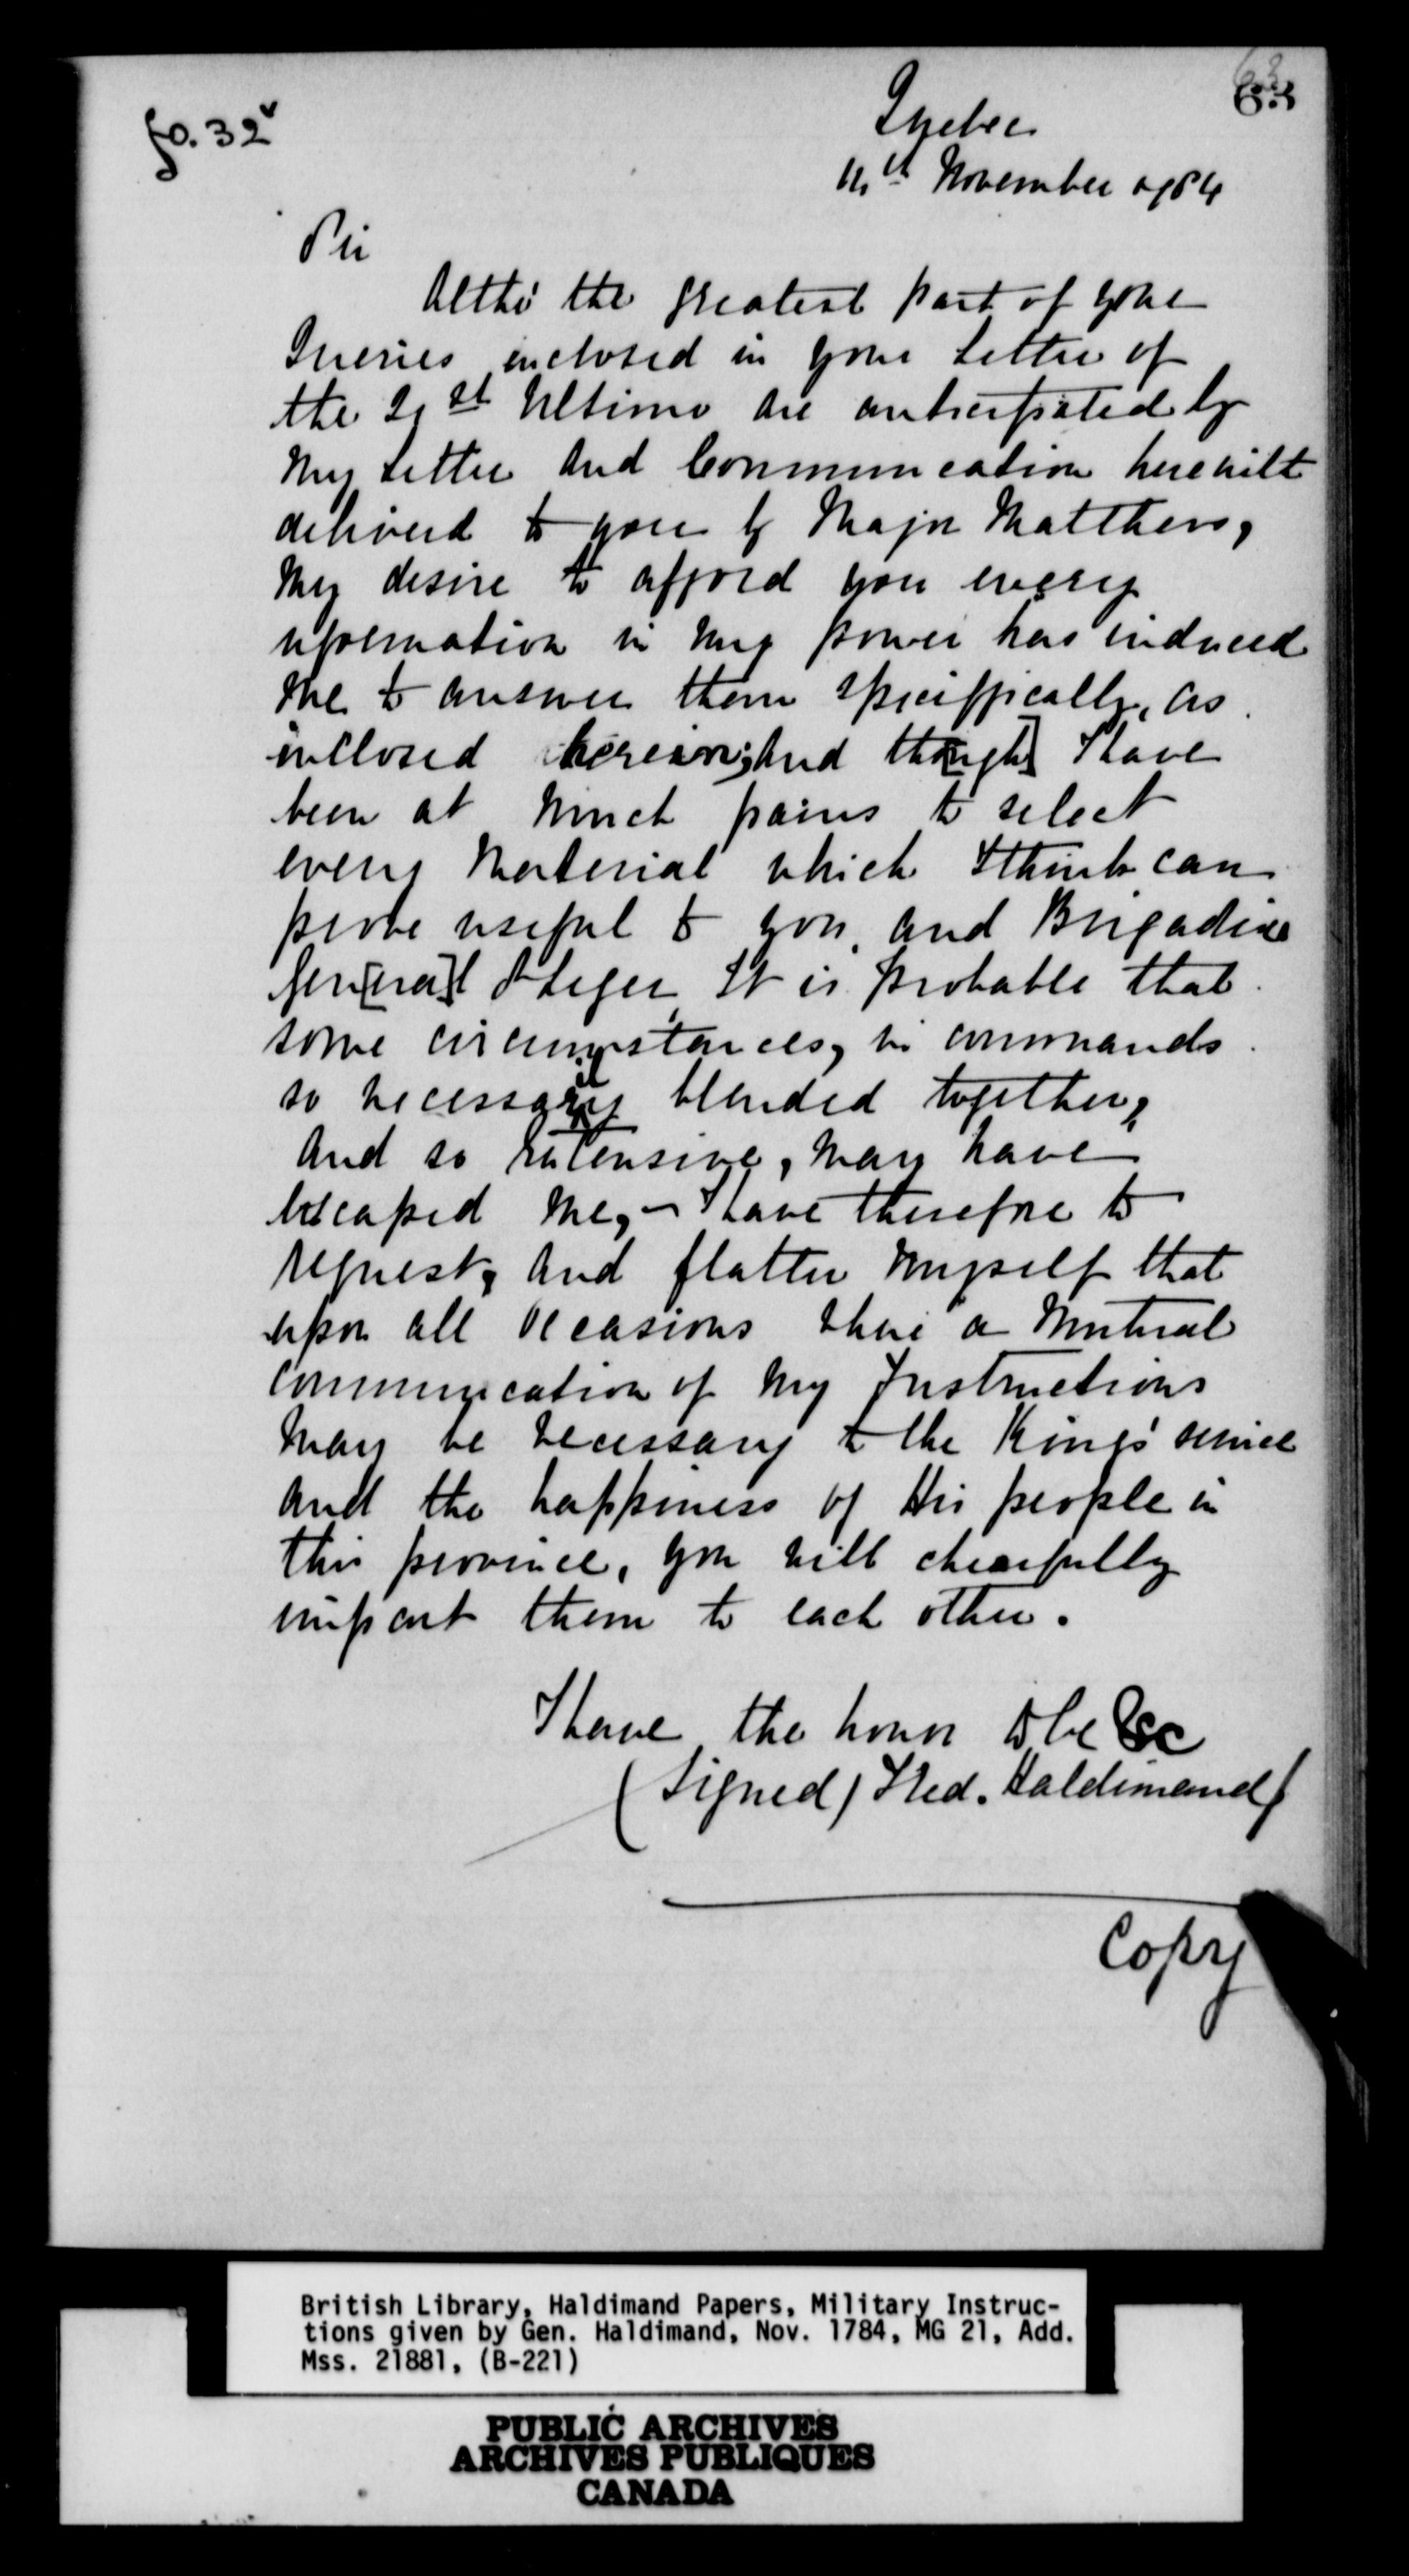 fo. 32v
63
Quebec
14th November 1784
Sir
Altho' the greatest part of your
Queries enclosed in your Letter of
the 21st Ultimo are anticipated by
my Letter and Communication herewith
deliverd to you by Major Matthews,
my desire to afford you every
information in my power has induced
me to answer them speciffically, as
inclosed herein; and tho[ugh] I have
been at much pains to select
every material which I think can
prove useful to you, and Brigadier
Gen[era]l St Leger It is probable that
some circumstances, in commands
so necessarily blended together,
and so extensive, may have
escaped me, - I have therefore to
request, and flatter myself that
upon all occasions where a mutual
communication of my Instructions
may be necessary to the King's service
and the happiness of His people in
this province, you will chearfully
impart them to each other.
I have the honor to be &c
(signed) Fred. Haldimand)
Copy
British Library, Haldimand Papers, Military Instruc-
tions given by Gen. Haldimand, Nov. 1784, MG 21, Add.
Mss. 21881, (B-221)
PUBLIC ARCHIVES
ARCHIVES PUBLIQUES
CANADA